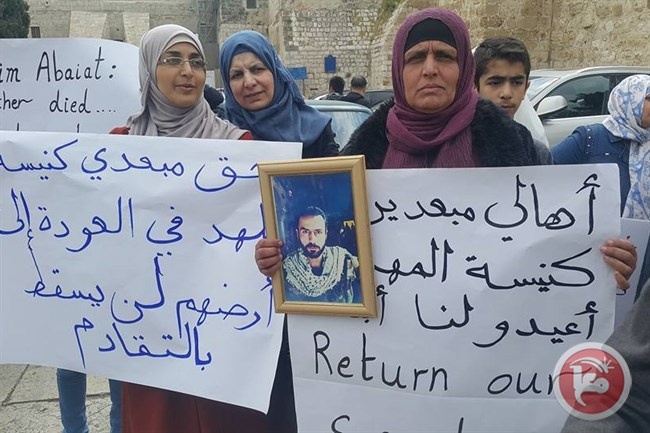 im Abaiat:
ther died....
حق مبعدي كنيسة
المهد في العودة إلى
أرضهم لن يسقط
بالتقادم
أهالي مبعدي
كنيسة المهد
أعيدو لنا
Return our